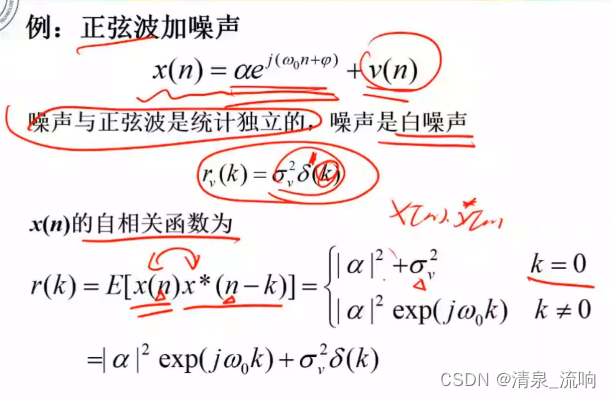 例：正弦波加噪声
x(n) = αe^{j(ω₀n+φ)} + v(n)
噪声与正弦波是统计独立的，噪声是白噪声
r_v(k) = σ_v²δ(k)
x(n)的自相关函数为
r(k) = E[x(n)x*(n−k)] = { |α|² + σ_v²  k = 0
|α|² exp(jω₀k)  k ≠ 0
=|α|² exp(jω₀k) + σ_v²δ(k)
CSDN @清泉_流响